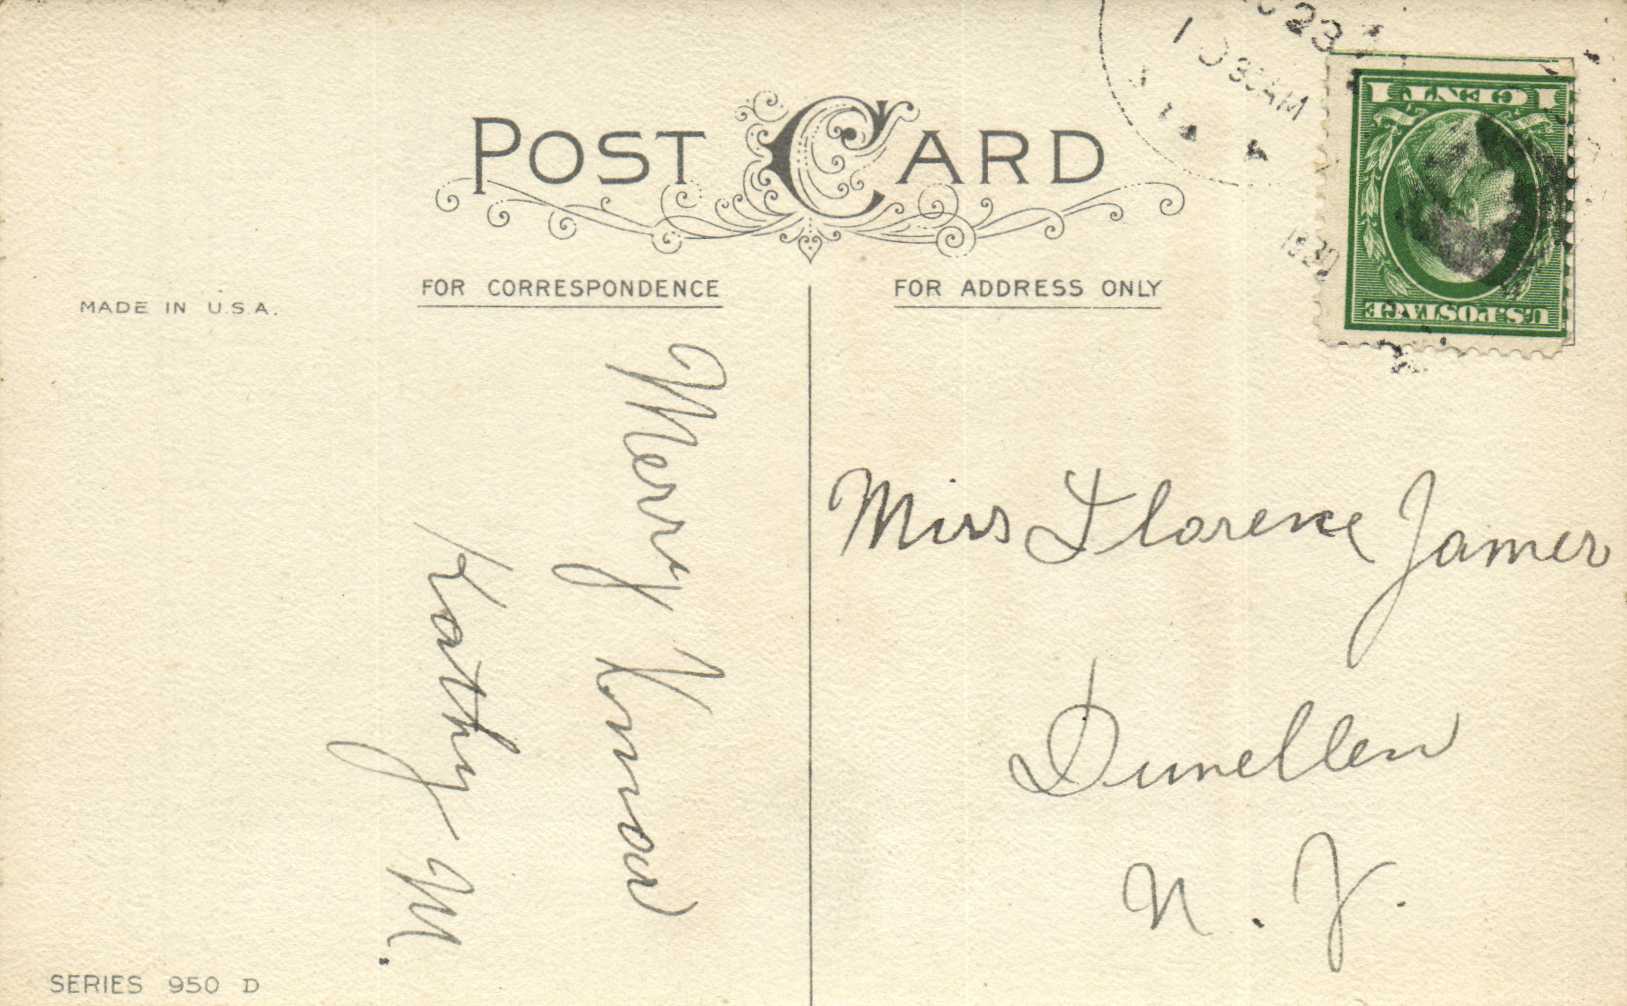 POST CARD
FOR CORRESPONDENCE
FOR ADDRESS ONLY
MADE IN U.S.A.
23
30 AM
1 CENT 1
U.S. POSTAGE
Merry Xmas
Kathy M.
Miss Florence James
Dunellen
N. J.
SERIES 950 D